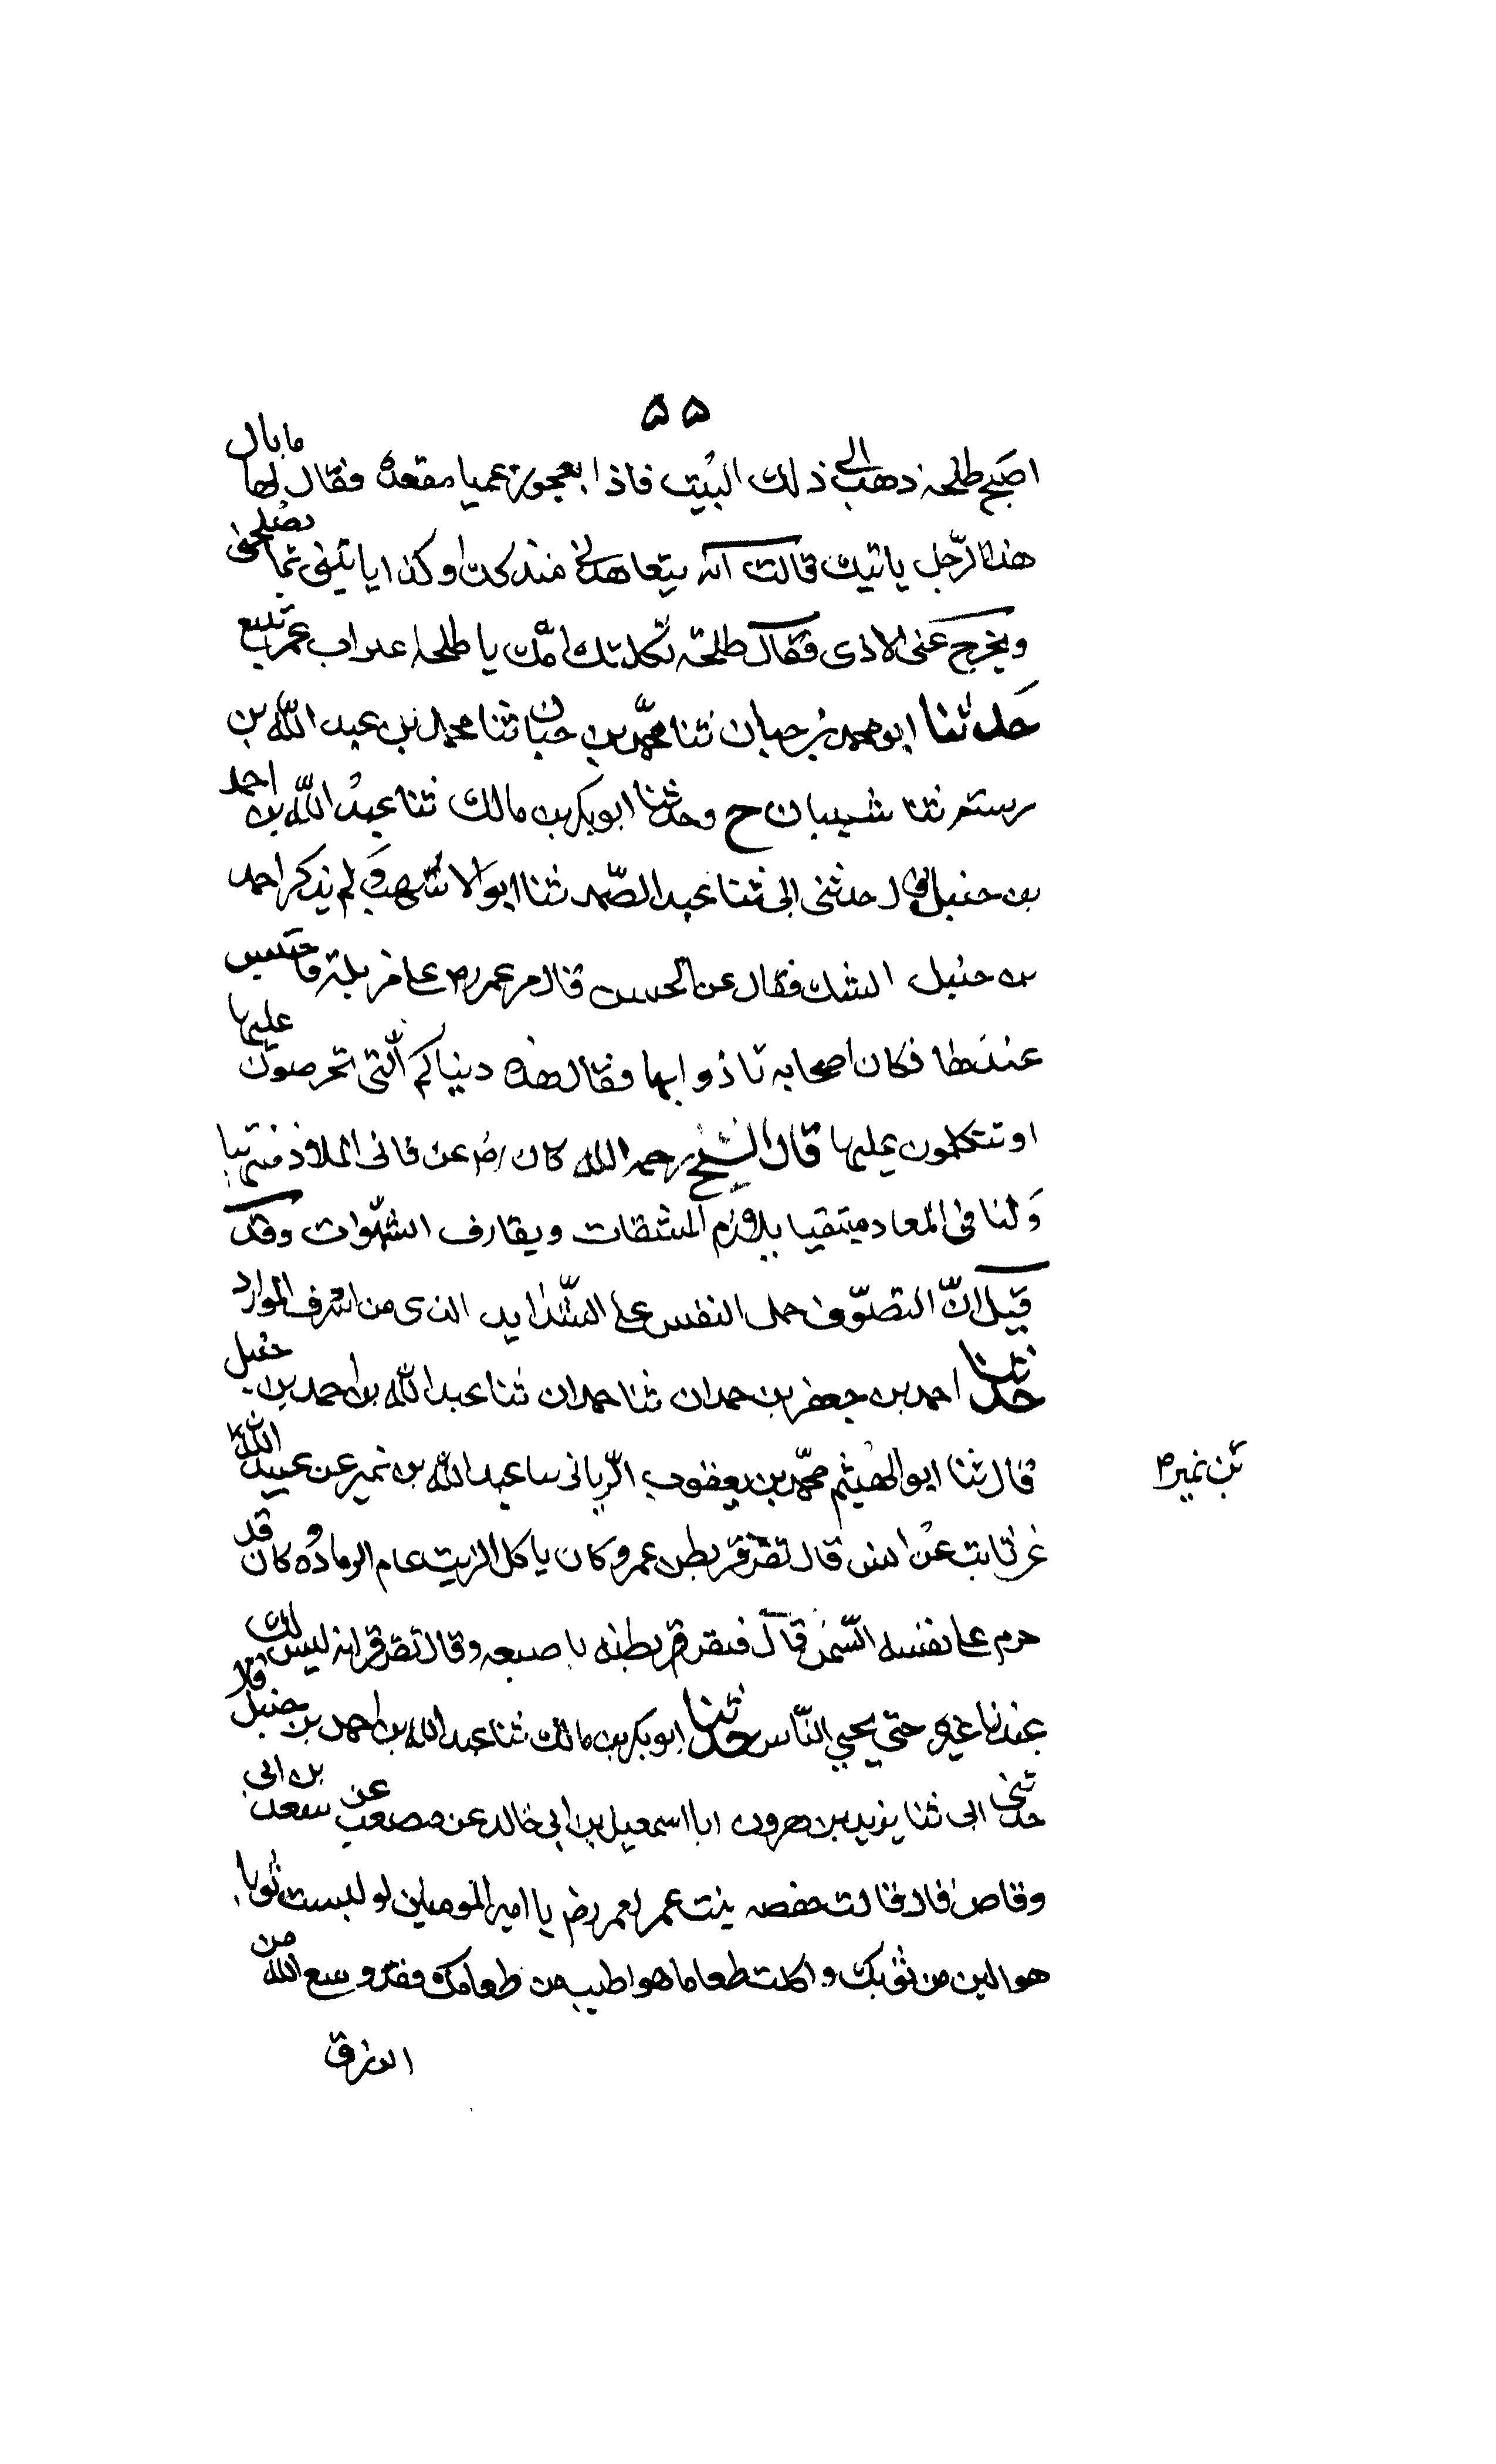 ۵۵
اصبح طلحة ذهب الى ذلك البيت فاذا بعجوز عميا مقعدة فقال لها ما بال
هذا الرّجل ياتيك قالت انه يتعاهدنى منذ كذا وكذا ياتينى بما يصلحنى
ويخرج عنى الاذى فقال طلحة ثكلتك امّك يا طلحة اعثرات عمر تتبع
حدثنا ابو محمد بن حيان ثنا محمّد بن حيان ثنا محمد بن عبد الله بن
رسته ثنا شيبان ح وحدثنا ابو بكر بن مالك ثنا عبد اللّه بن احمد
بن حنبل قال حدثنى ابى ثنا عبد الصّمد ثنا ابو الاشهب ولم يذكر احمد
بن حنبل الشك فقال عن الحسن قال مر عمر رض على مزبلة فاحتبس
عندها فكان اصحابه تاذوا بها فقال هذه دنياكم الّتى تحرصون عليها
او تتكلمون عليها قال الشيخ رحمه الله كان رض عن فانى الملاذ منتهيا
ولنا فى المعاد مبتغيا يلازم المشقات ويفارق الشهّوات وقد
قيل انّ التصوّف حمل النفس على الشّدايد الذى من اشرف الموارد
حدثنا احمد بن جعفر بن حمدان ثنا حمدان ثنا عبد اللّه بن احمد بن حنبل
قال ثنا ابو الهيثم محمّد بن يعقوب الرّبانى سا عبد اللّه بن نمير عن عبيد الله
بن نمير م
عن ثابت عن انس قال تقرقر بطن عمر وكان ياكل الزيت عام الرمادة وكان قد
حرم على نفسه السّمن قال فنقر قر بطنه باصبعه وقال تقرقر انه ليس لك
عندنا غيره حتى يحيى النّاس حدثنا ابو بكر بن مالك ثنا عبد الله بن احمد بن حنبل قال
حدثنى ابى ثنا يزيد بن هرون ابا اسمعيل بن ابى خالد عن مصعب عن سعد بن ابى
وقاص قال قالت حفصة بنت عمر لعمر رض يا امير المومنين لو لبست ثوبا
هو الين من ثوبك واكلت طعاما هو اطيب من طعامك فقد وسع الله من
الرزق